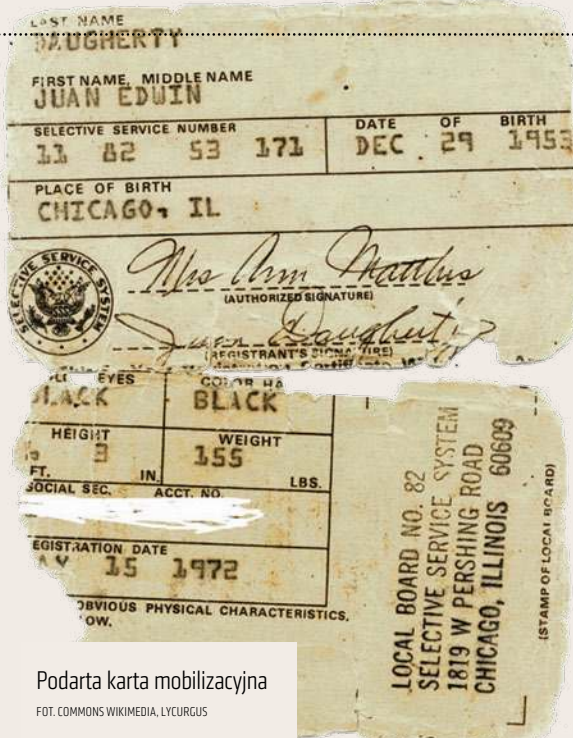 LAST NAME
DAUGHERTY
FIRST NAME, MIDDLE NAME
JUAN EDWIN
SELECTIVE SERVICE NUMBER
11 82 53 171
DATE OF BIRTH
DEC 29 1953
PLACE OF BIRTH
CHICAGO, IL
SELECTIVE SERVICE SYSTEM
Mrs Ann Matthis
(AUTHORIZED SIGNATURE)
Juan Daugherty
(REGISTRANT'S SIGNATURE)
EYES
BLACK
COLOR HA
BLACK
HEIGHT
3
FT. IN.
WEIGHT
155
LBS.
SOCIAL SEC. ACCT. NO.
EGISTRATION DATE
AY 15 1972
OBVIOUS PHYSICAL CHARACTERISTICS.
OW.
LOCAL BOARD NO. 82
SELECTIVE SERVICE SYSTEM
1819 W PERSHING ROAD
CHICAGO, ILLINOIS 60609
(STAMP OF LOCAL BOARD)
Podarta karta mobilizacyjna
FOT. COMMONS WIKIMEDIA, LYCURGUS